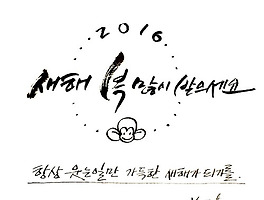 2016
새해 복 많이 받으세요
항상 웃는일만 가득한 새해가 되기를.